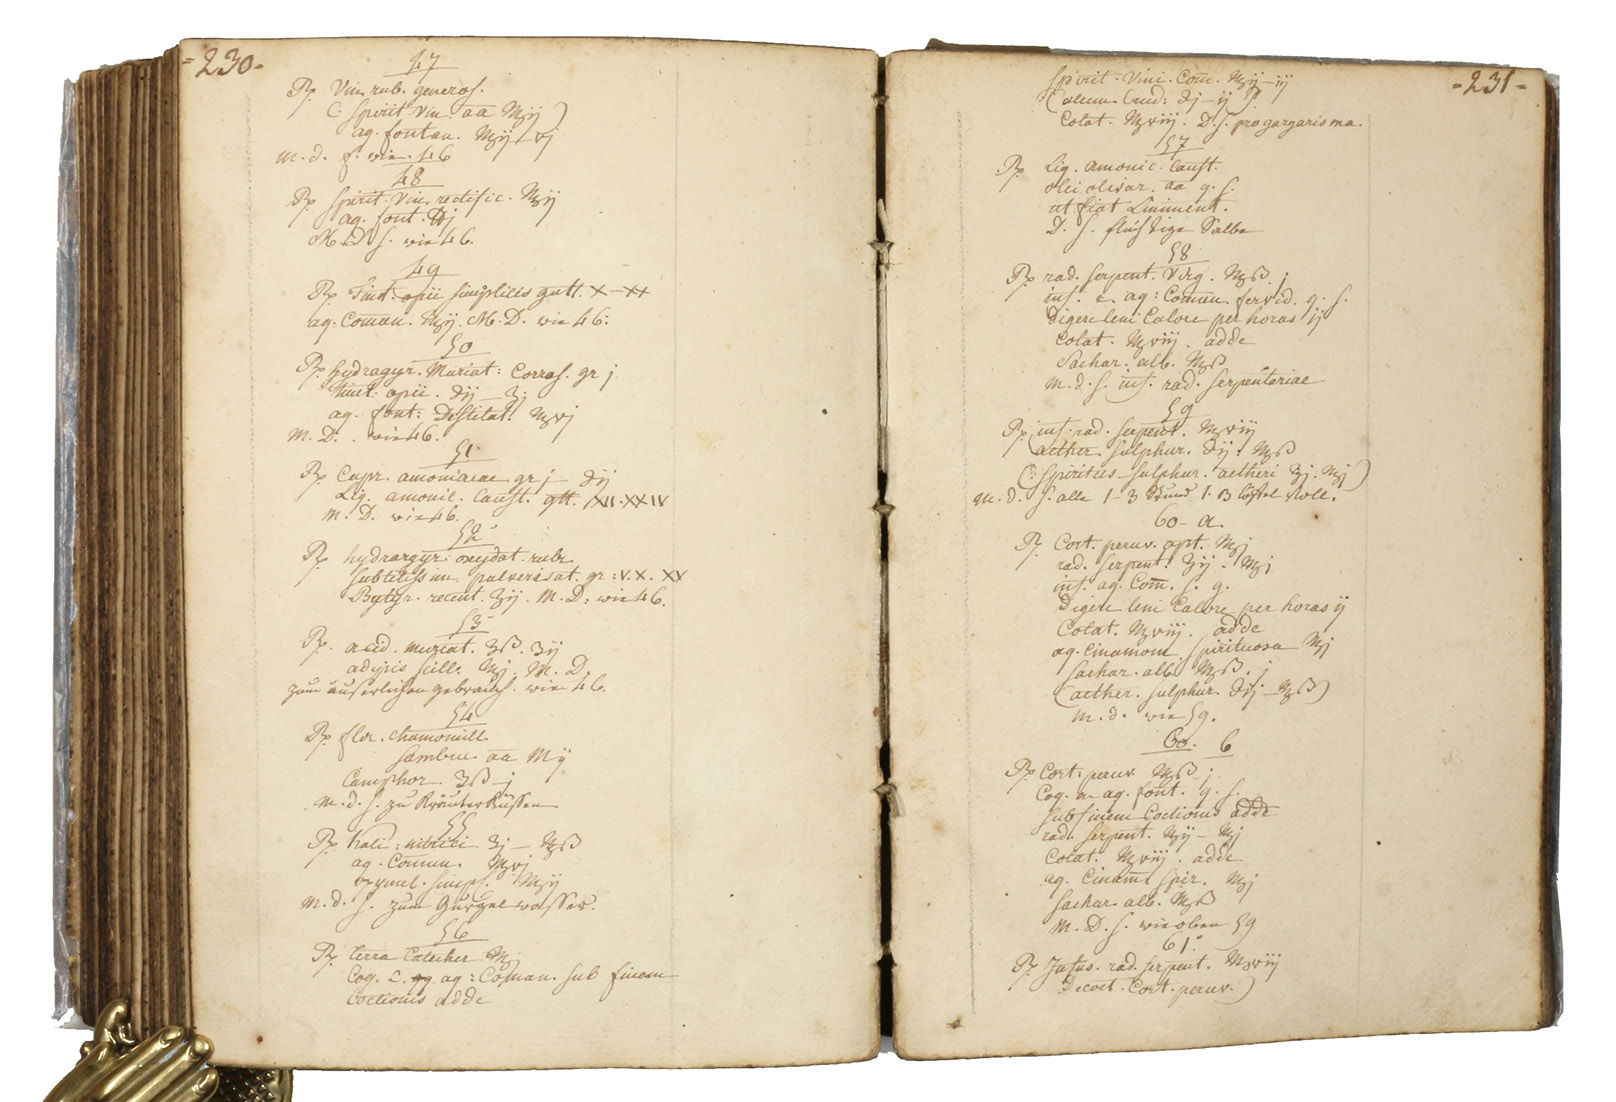 -230-
47
Rp. Vin. rub. generos.
(: Spirit. Vin. aa ℥ij)
aq. fontan. ℥ij — vj
M. d. f. wie. 46
48
Rp. Spirit. Vin. rectific. ℥ij
aq. font. ℔j
M. D. S. wie 46.
49
Rp. Tinct. opii simplicis gutt. X—XX
aq. Comun. ℥ij. M. D. wie 46.
50
Rp. hydragyr. Muriat: Corros. gr j
tinct: opii. ʒij — ℥j
aq. font: Destilat. ℥vj
M. D. . wie 46.
51
Rp. Cupr. amoniacae gr j — ʒij
Liq. amonic. Caust. gtt. XII. XXIV
M. D. wie 46.
52
Rp. hydrargyr: oxydat. rubr.
subtilissim. pulverisat. gr: V. X. XV
Butyr. recent. ʒij. M. D: wie 46.
53
Rp. acid. muriat. ʒß. ʒij
adipis suill. ℥j. M. D.
zum äuserlichen gebrauch. wie 46.
54
Rp. flor. chamomill.
Sambuc. aa M ij
Camphor. ʒß — j
M. d. S. zu Kräuter Küssen
55
Rp. Kali: nitrici ʒj — ℥ß
aq. Comun. ℥vj
oxymel. simpl. ℥ij
M. d. S. zum Gurgel wasser.
56
Rp. terra Catechu ℥j
Coq. c. aq: Coman. sub finem
Coctionis adde
-231-
Spirit. Vini. Com. ℥ij—iij
(alumn Crud: ʒj — ij)
Colat. ℥viij. D. S. pro gargarisma.
57
Rp. Liq. amonic. Caust.
olei olivar. aa q. s.
ut fiat Liniment.
D. S. flüssige Salbe
58
Rp. rad. serpent. Virg. ℥ß. j
inf. c. aq: Comun. fervid. q. s.
Digere leni Calore per horas ij
Colat. ℥viij. adde
Sachar. alb. ℥ß
M. d. S. inf. rad. serpentariae
59
Rp. inf. rad. serpent. ℥viij
(aether. sulphur. ʒij. ℥ß
(: Spiritus sulphur. aetheri ʒj. ℥j)
M. d. S. alle 1-3 Stund 1. 3 löffel voll.
60- a.
Rp. Cort. peruv. opt. ℥j
rad. serpent. ʒij. ℥j
inf. aq. Com. s. q.
Digere leni Calore per horas ij
Colat. ℥viij. adde
aq. Cinamom spirituosa ℥j
Sachar. albi ℥ß. j
(aether. sulphur. ʒij — ℥ß)
M. d. wie 59.
60. b
Rp. Cort. peruv. ℥ß j
Coq. in aq. font. q. s.
sub finem Coctionis adde
rad. serpent. ʒij — ℥j
Colat. ℥viij. adde
aq. Cinam. spir. ℥j
Sachar. alb. ℥ß
M. D. S. wie oben 59
61.
Rp. Infus. rad. serpent. ℥viij
Decoct. Cort. peruv.)